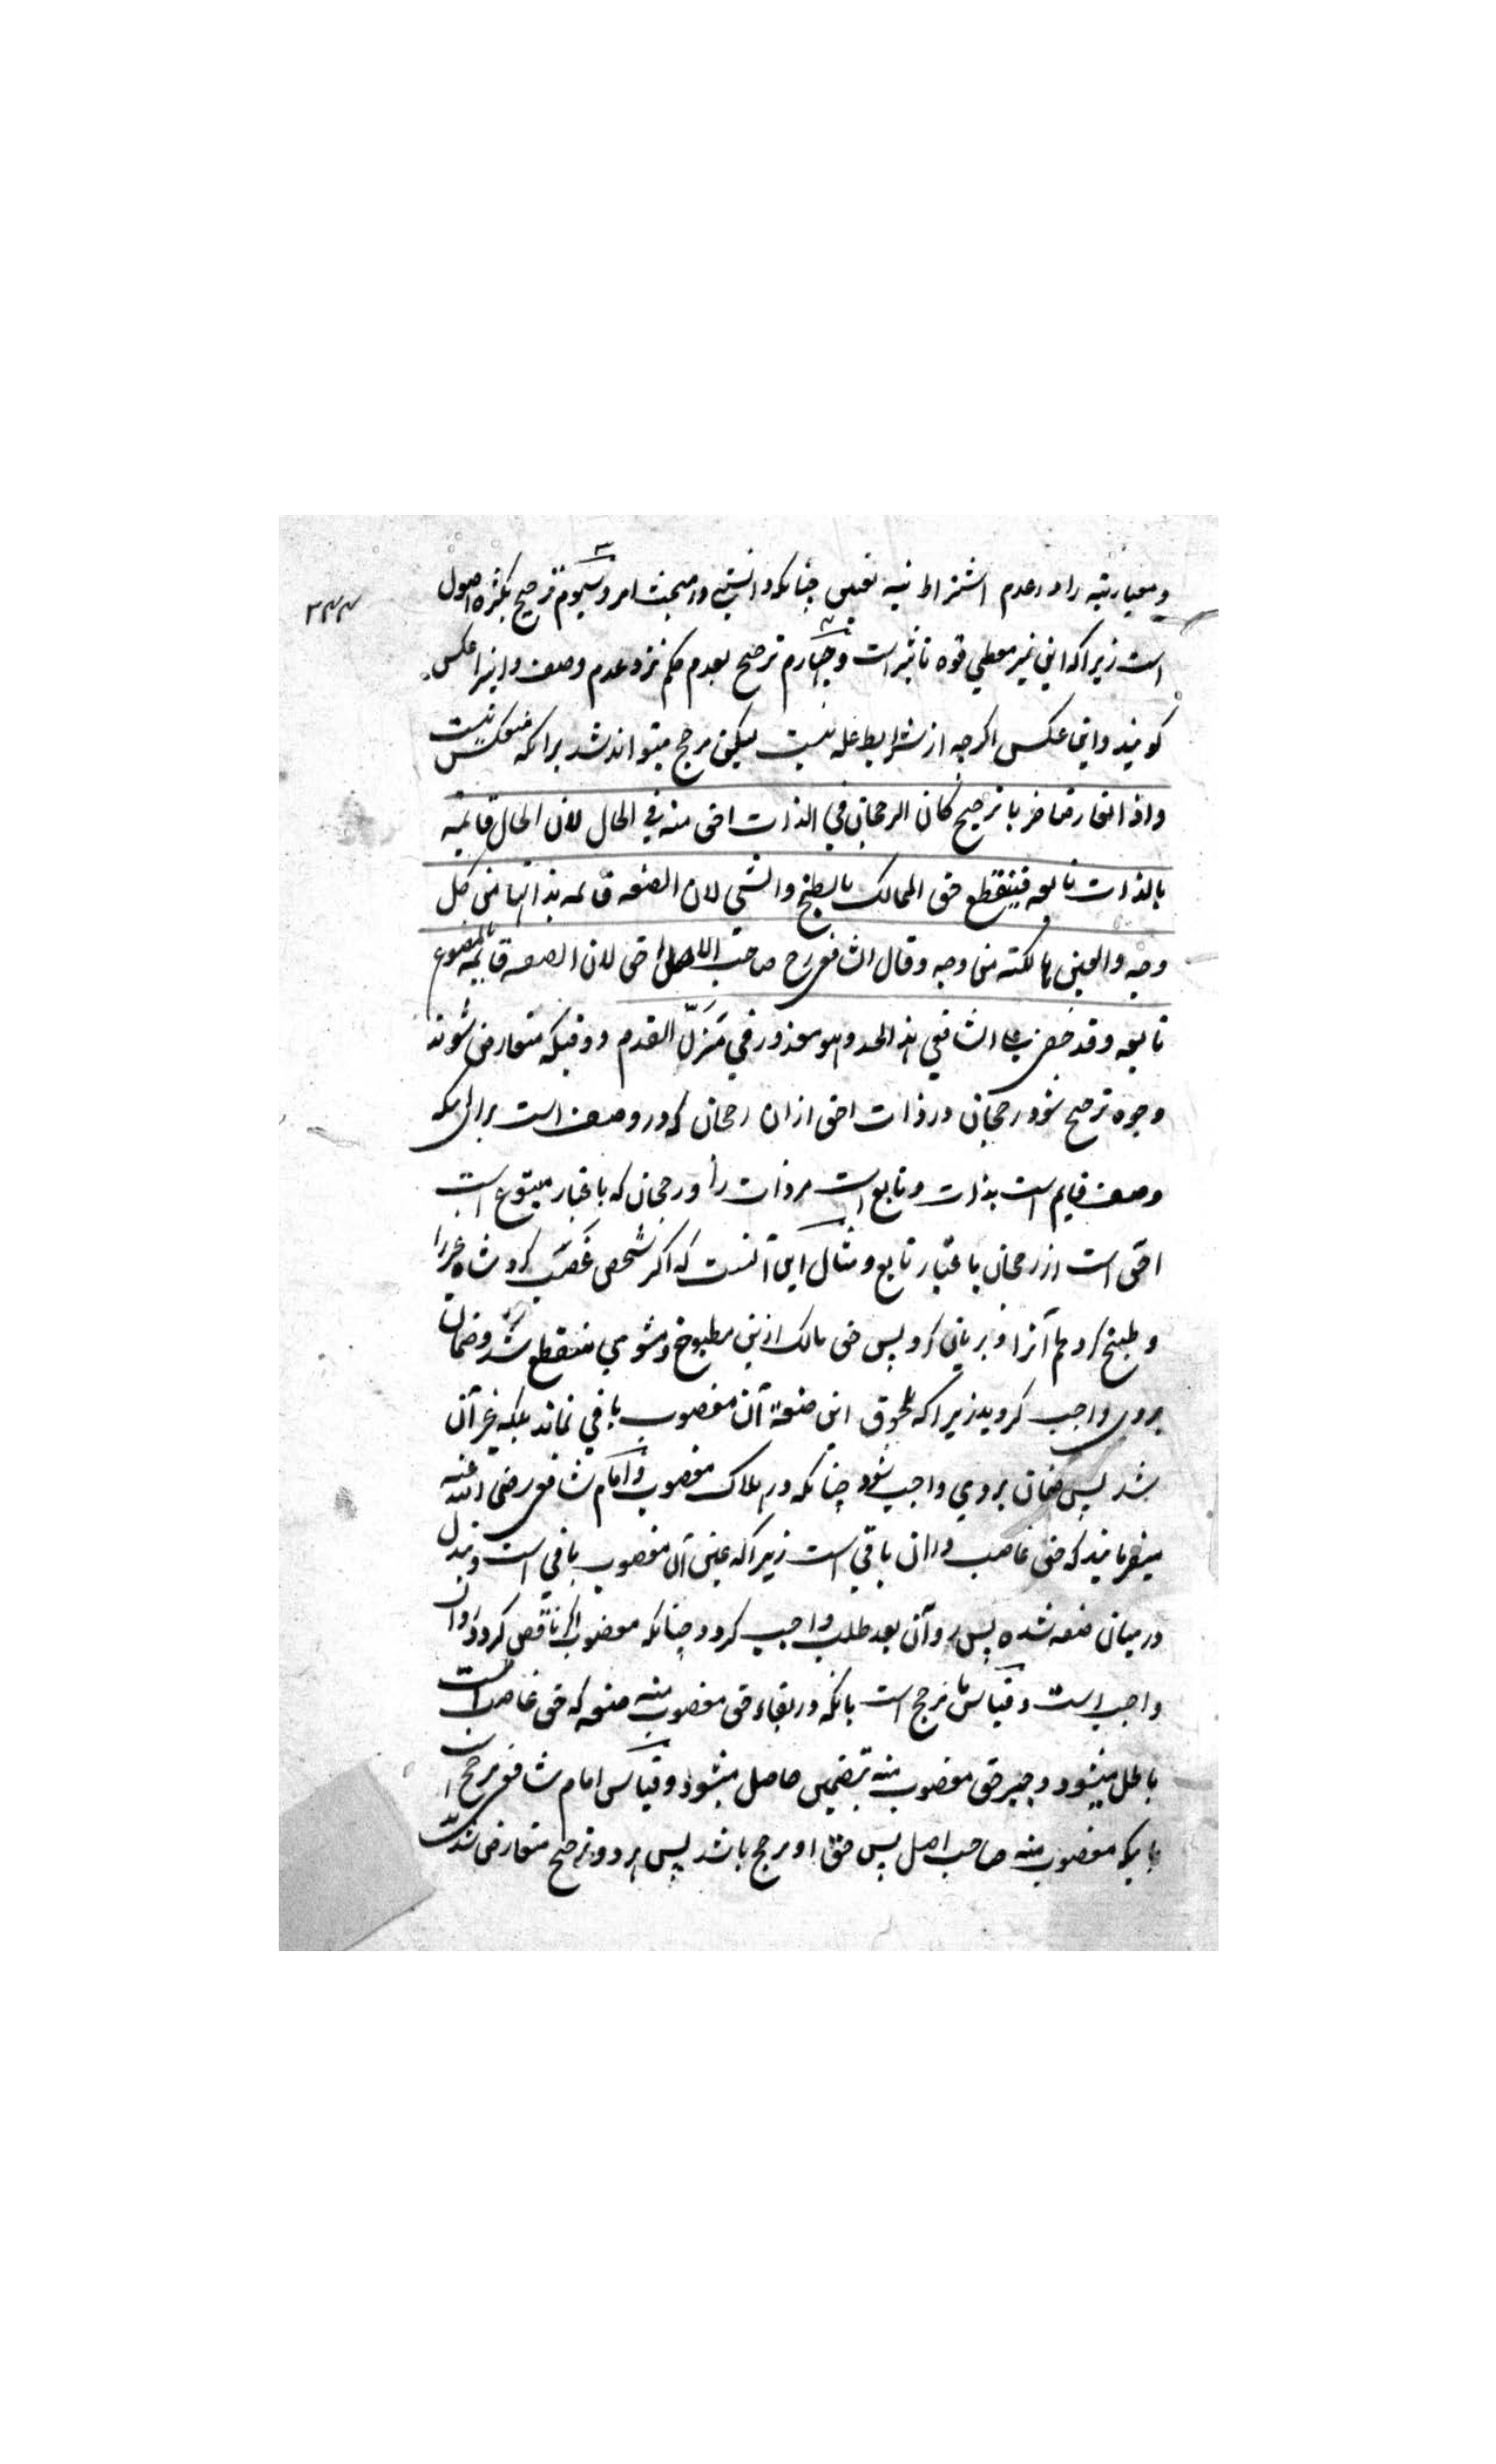 ومعیاریته را در عدم اشتراط نیه تعیین چنانکه دانستی در مبحث امر وسیوم ترجیح بکثرة اصول
است زیرا که این نیز معطی قوه تاثیر است وچهارم ترجیح بعدم حکم نزد عدم وصف واینرا عکس
کویند واین عکس اکرچه از شرایط عله نیست لیکن مرجح میتواند شد برانکه منعکس نیست
واذا تعارض ضربا ترجیح کان الرجحان فی الذات احق منه فی الحال لان الحال قایمه
بالذات تابعه فینقطع حق المالک بالطبخ والشی لان الصنعه قایمه بذاتها من کل
وجه والعین هالکته من وجه وقال الشافعی رح صاحب الاصل احق لان الصنعه قایمه بالمصنوع
تابعه وقد الشافعی هذا الحد وهو معذور فی مزل القدم ووقتیکه متعارض شوند
وجوه ترجیح شود رجحان در ذات احق ازان رجحان که در وصف است برای اینکه
وصف قایم است بذات وتابع است مر ذات را ورجحان که باعتبار متبوع است
احق است از رجحان باعتبار تابع ومثال این آنست که اکر شخصی غصب کرد شاه غیر را
وطبخ کرد لحم آنرا وبریان کرد پس حق مالک ازین مطبوخ ومشوی منقطع شد وضمان
بروی واجب کردید زیرا که بلحوق این صنعة آن مغصوب باقی نماند بلکه غیر آن
شد پس ضمان بروی واجب شود چنانکه در هلاک مغصوب وامام شافعی رضی الله عنه
میفرمایند که حق غاصب دران باقی است زیرا که عین آن مغصوب باقی است ومبدل
درمیان صنعه شده پس رد آن بعد طلب واجب کردد چنانکه مغصوب اکر ناقص کردد رد آن
واجب است وقیاس ما مرجح است بانکه در بقاء حق مغصوب منه صنعه که حق غاصب است
باطل میشود وجبر حق مغصوب منه بتضمین حاصل میشود وقیاس امام شافعی مرجح است
بانکه مغصوب منه صاحب اصل پس حق او مرجح باشد پس هر دو ترجیح متعارض شدند